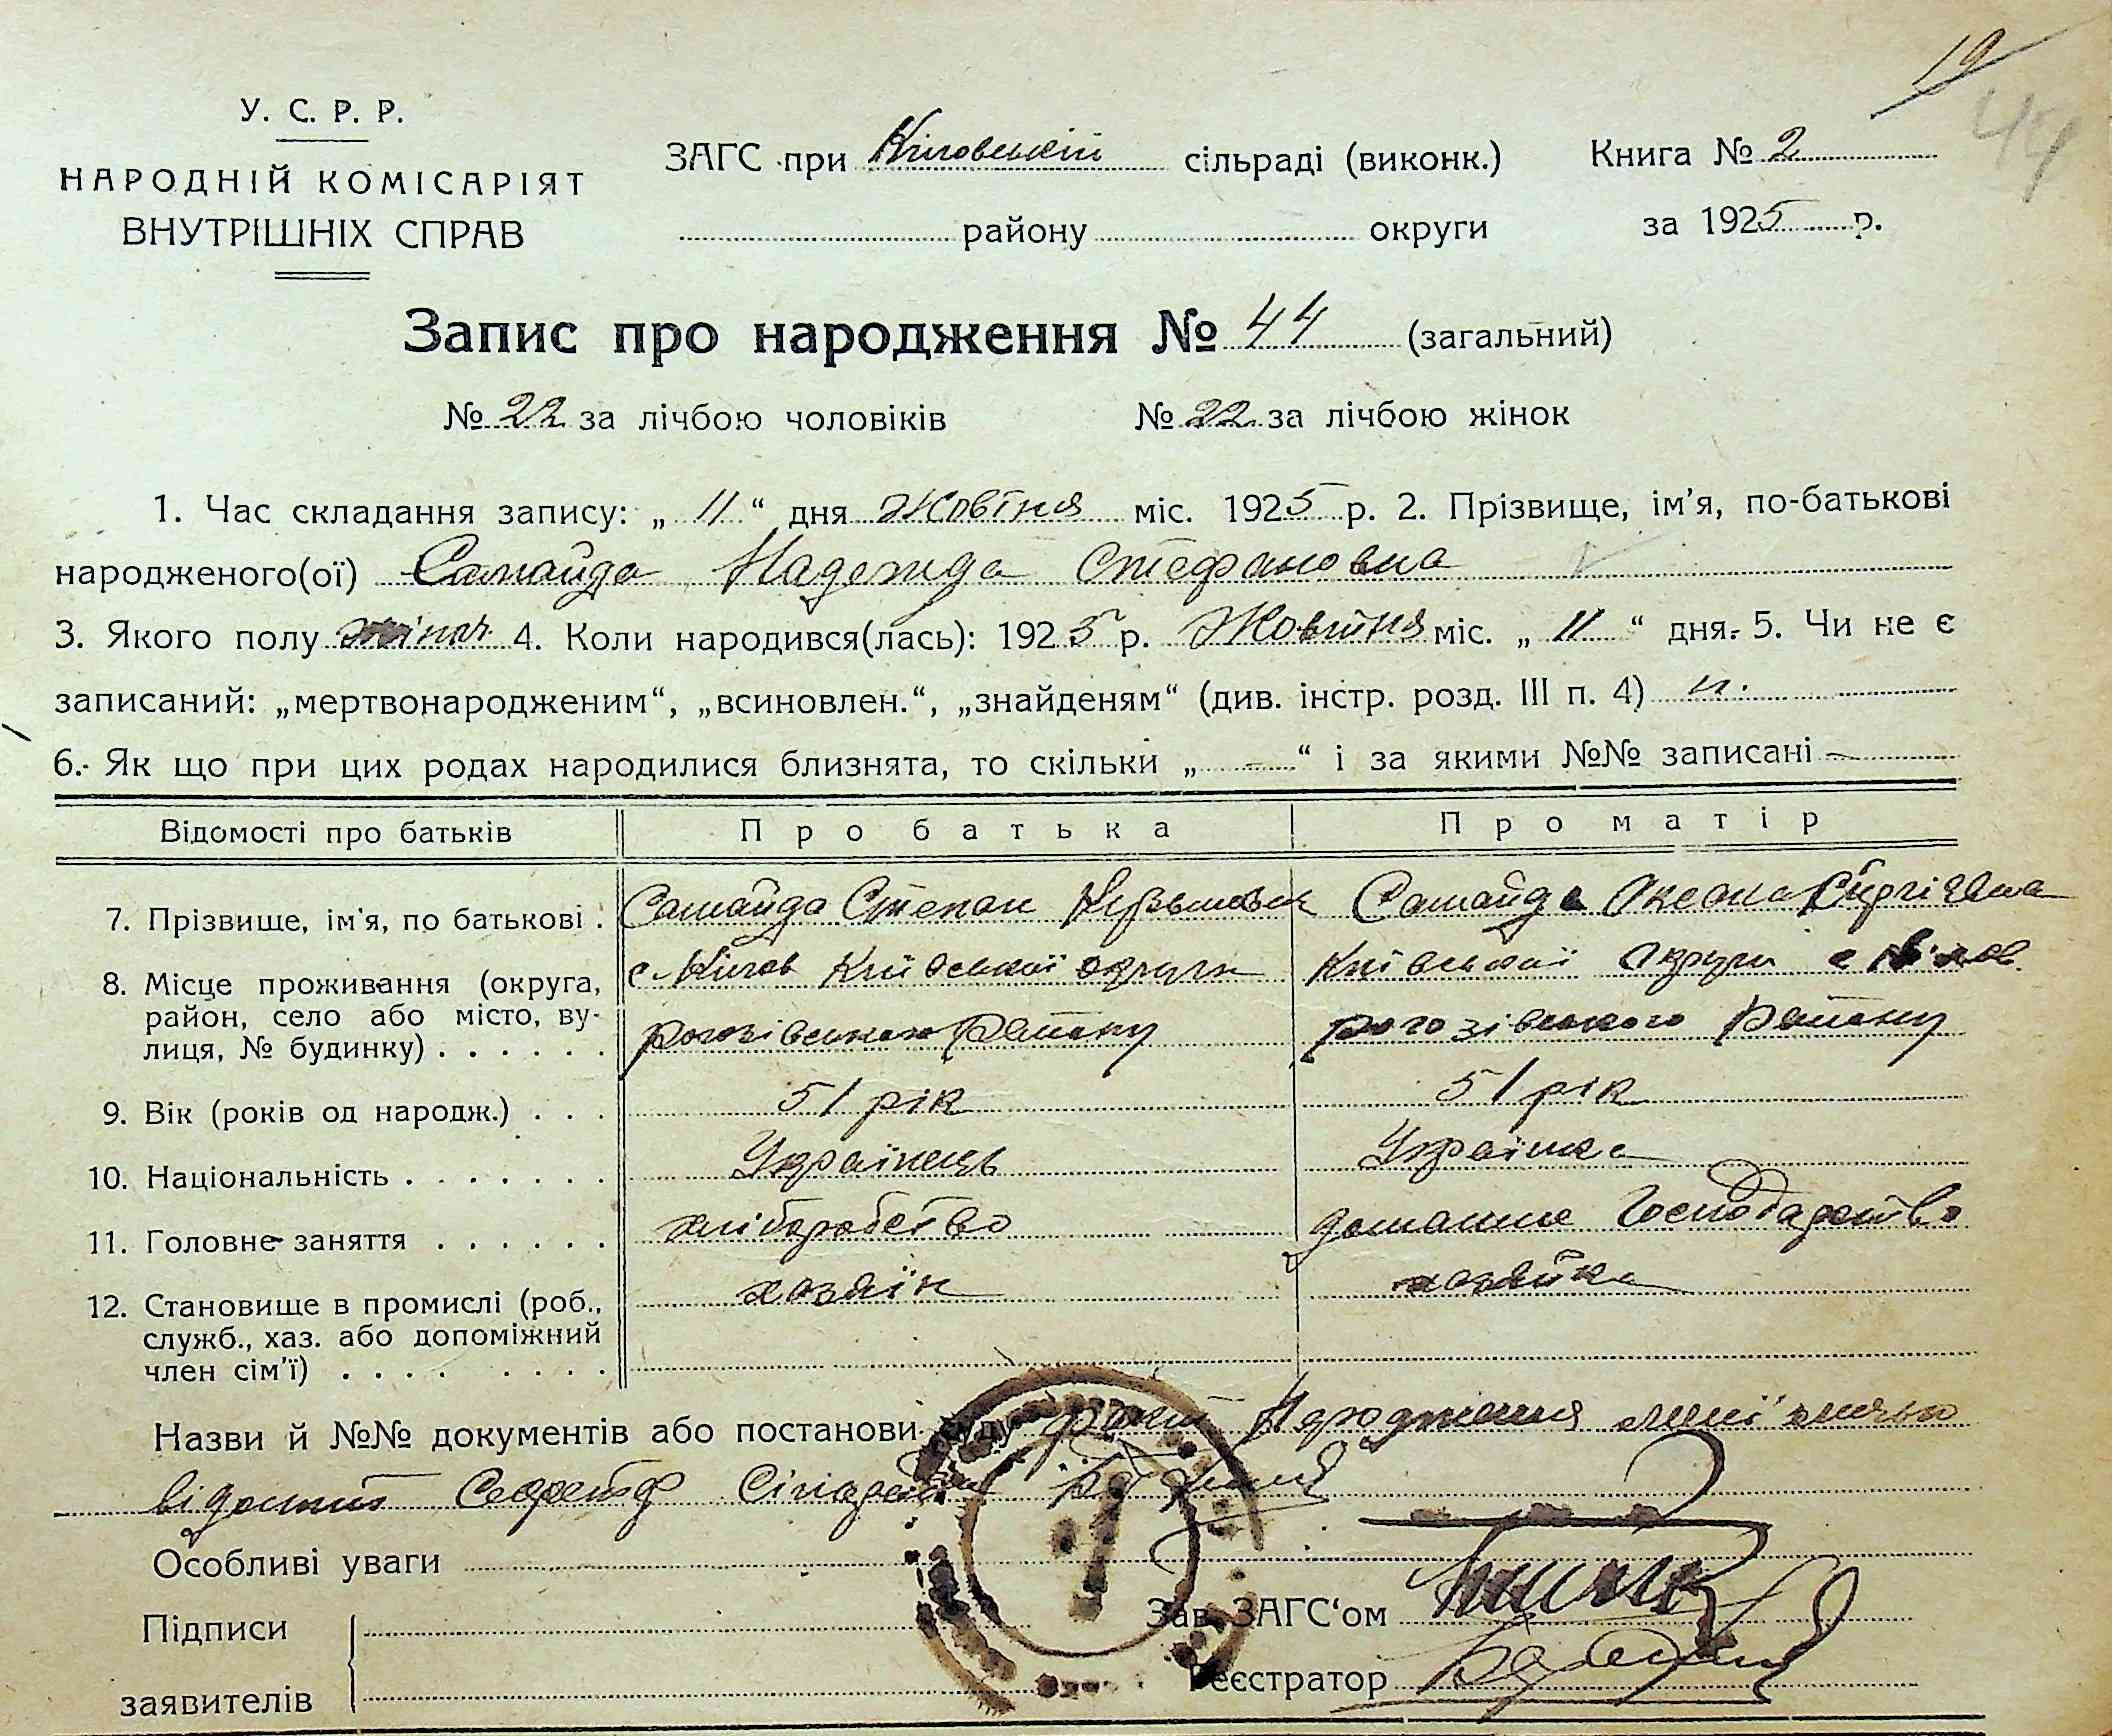 19
44
У. С. Р. Р.
НАРОДНІЙ КОМІСАРІЯТ
ВНУТРІШНІХ СПРАВ
ЗАГС при сільраді (виконк.)
району округи
Книга № 2
за 1925 р.
Запис про народження № 44 (загальний)
№ 22 за лічбою чоловіків № 22 за лічбою жінок
1. Час складання запису: „ 11 “ дня Жовтня міс. 1925 р. 2. Прізвище, ім'я, по-батькові
народженого(ої) Самайда Надежда Стефановна
3. Якого полу жіноч. 4. Коли народився(лась): 1925 р. Жовтня міс. „ 11 “ дня. 5. Чи не є
записаний: „мертвонародженим“, „всиновлен.“, „знайденям“ (див. інстр. розд. III п. 4) н.
6. Як що при цих родах народилися близнята, то скільки „ — “ і за якими №№ записані —
Відомості про батьків Про батька Про матір
7. Прізвище, ім'я, по батькові . Самайда Степан Самайда Оксана
8. Місце проживання (округа, с. Київської округи Київської округи с.
район, село або місто, ву-
лиця, № будинку) . . . . . . рогозівського району рогозівського району
9. Вік (років од народж.) . . . 51 рік 51 рік
10. Національність . . . . . . . Українець Українка
11. Головне заняття . . . . . . хліборобство домашнє господарство
12. Становище в промислі (роб., хозяїн хозяйка
служб., хаз. або допоміжний
член сім'ї) . . . . . . . .
Назви й №№ документів або постанови суду Народження
Особливі уваги
Підписи
заявителів
Зав. ЗАГС‘ом
Реєстратор